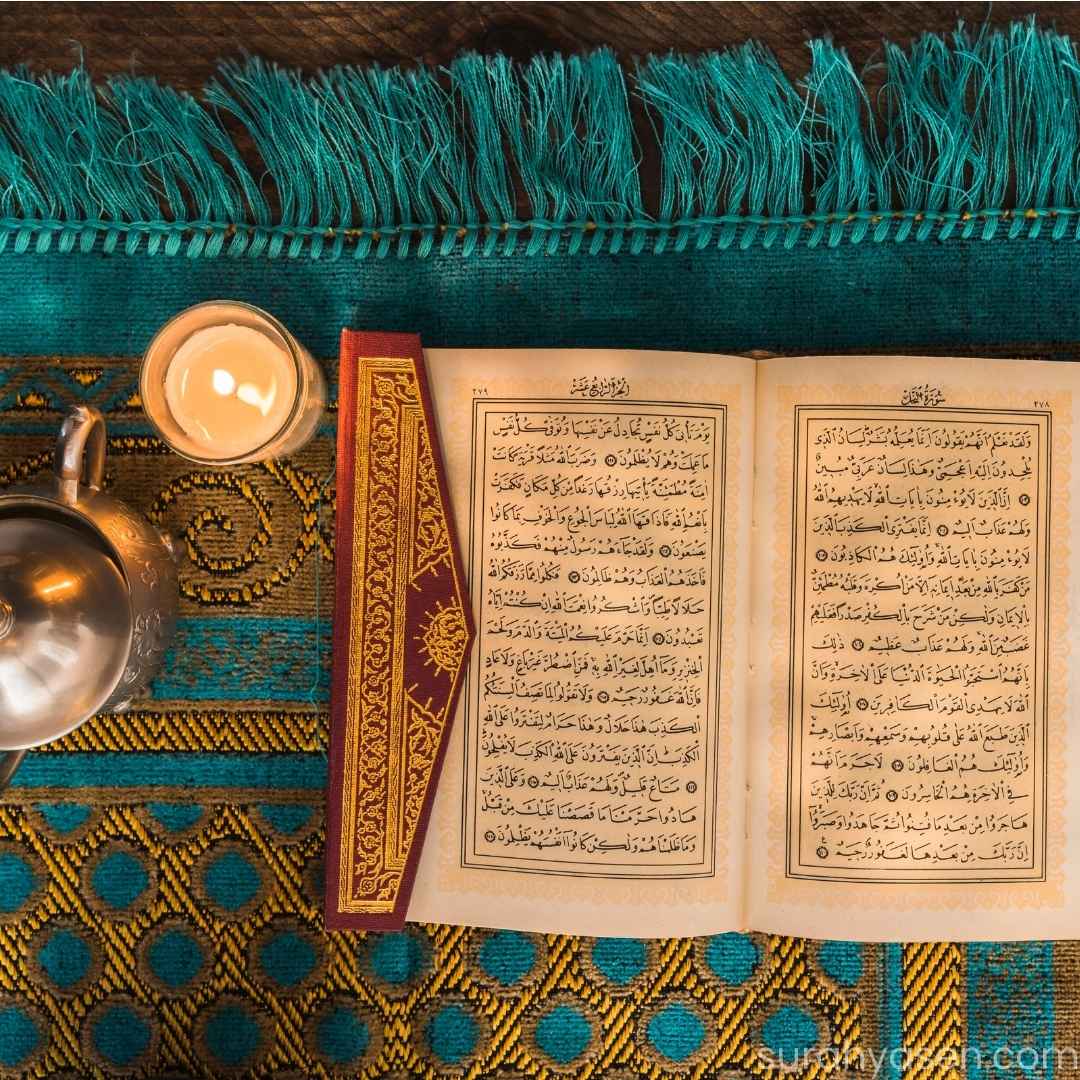 سُورَةُ النَّحْلِ ٢٧٨
وَلَقَدْ نَعْلَمُ اَنَّهُمْ يَقُولُونَ اِنَّمَا يُعَلِّمُهُ بَشَرٌ لِسَانُ الَّذِي
يُلْحِدُونَ اِلَيْهِ اَعْجَمِيٌّ وَهٰذَا لِسَانٌ عَرَبِيٌّ مُبِينٌ
﴿١٠٣﴾ اِنَّ الَّذِينَ لَا يُؤْمِنُونَ بِاٰيَاتِ اللّٰهِ لَا يَهْدِيهِمُ اللّٰهُ
وَلَهُمْ عَذَابٌ اَلِيمٌ ﴿١٠٤﴾ اِنَّمَا يَفْتَرِي الْكَذِبَ الَّذِينَ
لَا يُؤْمِنُونَ بِاٰيَاتِ اللّٰهِ وَاُولٰئِكَ هُمُ الْكَاذِبُونَ ﴿١٠٥﴾
مَنْ كَفَرَ بِاللّٰهِ مِنْ بَعْدِ اِيمَانِهِ اِلَّا مَنْ اُكْرِهَ وَقَلْبُهُ مُطْمَئِنٌّ
بِالْاِيمَانِ وَلٰكِنْ مَنْ شَرَحَ بِالْكُفْرِ صَدْرًا فَعَلَيْهِمْ
غَضَبٌ مِنَ اللّٰهِ وَلَهُمْ عَذَابٌ عَظِيمٌ ﴿١٠٦﴾ ذٰلِكَ
بِاَنَّهُمُ اسْتَحَبُّوا الْحَيٰوةَ الدُّنْيَا عَلَى الْاٰخِرَةِ وَاَنَّ
اللّٰهَ لَا يَهْدِي الْقَوْمَ الْكَافِرِينَ ﴿١٠٧﴾ اُولٰئِكَ
الَّذِينَ طَبَعَ اللّٰهُ عَلٰى قُلُوبِهِمْ وَسَمْعِهِمْ وَاَبْصَارِهِمْ
وَاُولٰئِكَ هُمُ الْغَافِلُونَ ﴿١٠٨﴾ لَا جَرَمَ اَنَّهُمْ
فِي الْاٰخِرَةِ هُمُ الْخَاسِرُونَ ﴿١٠٩﴾ ثُمَّ اِنَّ رَبَّكَ لِلَّذِينَ
هَاجَرُوا مِنْ بَعْدِ مَا فُتِنُوا ثُمَّ جَاهَدُوا وَصَبَرُوا
اِنَّ رَبَّكَ مِنْ بَعْدِهَا لَغَفُورٌ رَحِيمٌ ﴿١١٠﴾
اَلْجُزْءُ الرَّابِعَ عَشَرَ ٢٧٩
يَوْمَ تَأْتِي كُلُّ نَفْسٍ تُجَادِلُ عَنْ نَفْسِهَا وَتُوَفّٰى كُلُّ نَفْسٍ
مَا عَمِلَتْ وَهُمْ لَا يُظْلَمُونَ ﴿١١١﴾ وَضَرَبَ اللّٰهُ مَثَلًا قَرْيَةً كَانَتْ
اٰمِنَةً مُطْمَئِنَّةً يَأْتِيهَا رِزْقُهَا رَغَدًا مِنْ كُلِّ مَكَانٍ فَكَفَرَتْ
بِاَنْعُمِ اللّٰهِ فَاَذَاقَهَا اللّٰهُ لِبَاسَ الْجُوعِ وَالْخَوْفِ بِمَا كَانُوا
يَصْنَعُونَ ﴿١١٢﴾ وَلَقَدْ جَاءَهُمْ رَسُولٌ مِنْهُمْ فَكَذَّبُوهُ
فَاَخَذَهُمُ الْعَذَابُ وَهُمْ ظَالِمُونَ ﴿١١٣﴾ فَكُلُوا مِمَّا رَزَقَكُمُ اللّٰهُ
حَلَالًا طَيِّبًا وَاشْكُرُوا نِعْمَةَ اللّٰهِ اِنْ كُنْتُمْ اِيَّاهُ
تَعْبُدُونَ ﴿١١٤﴾ اِنَّمَا حَرَّمَ عَلَيْكُمُ الْمَيْتَةَ وَالدَّمَ وَلَحْمَ
الْخِنْزِيرِ وَمَا اُهِلَّ لِغَيْرِ اللّٰهِ بِهِ فَمَنِ اضْطُرَّ غَيْرَ بَاغٍ وَلَا عَادٍ
فَاِنَّ اللّٰهَ غَفُورٌ رَحِيمٌ ﴿١١٥﴾ وَلَا تَقُولُوا لِمَا تَصِفُ اَلْسِنَتُكُمُ
الْكَذِبَ هٰذَا حَلَالٌ وَهٰذَا حَرَامٌ لِتَفْتَرُوا عَلَى اللّٰهِ
الْكَذِبَ اِنَّ الَّذِينَ يَفْتَرُونَ عَلَى اللّٰهِ الْكَذِبَ لَا يُفْلِحُونَ
﴿١١٦﴾ مَتَاعٌ قَلِيلٌ وَلَهُمْ عَذَابٌ اَلِيمٌ ﴿١١٧﴾ وَعَلَى الَّذِينَ
هَادُوا حَرَّمْنَا مَا قَصَصْنَا عَلَيْكَ مِنْ قَبْلُ
وَمَا ظَلَمْنَاهُمْ وَلٰكِنْ كَانُوا اَنْفُسَهُمْ يَظْلِمُونَ ﴿١١٨﴾
surahyaseen.com